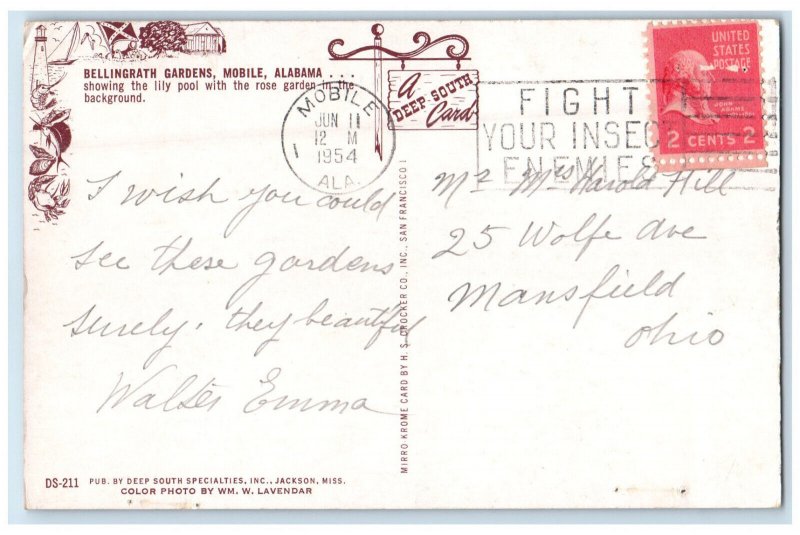 BELLINGRATH GARDENS, MOBILE, ALABAMA . . .
showing the lily pool with the rose garden in the
background.
A
DEEP-SOUTH
Card
MOBILE
JUN 11
12 M
1954
ALA.
FIGHT
YOUR INSECT
ENEMIES
UNITED
STATES
POSTAGE
JOHN
ADAMS
2 CENTS 2
I wish you could
see these gardens
surely. they beautiful
Walter Emma
MIRRO KROME CARD BY H. S. CROCKER CO., INC., SAN FRANCISCO 1
Mr Mrs Harold Hill
25 Wolfe Ave
Mansfield
Ohio
DS-211 PUB. BY DEEP SOUTH SPECIALTIES, INC., JACKSON, MISS.
COLOR PHOTO BY WM. W. LAVENDAR